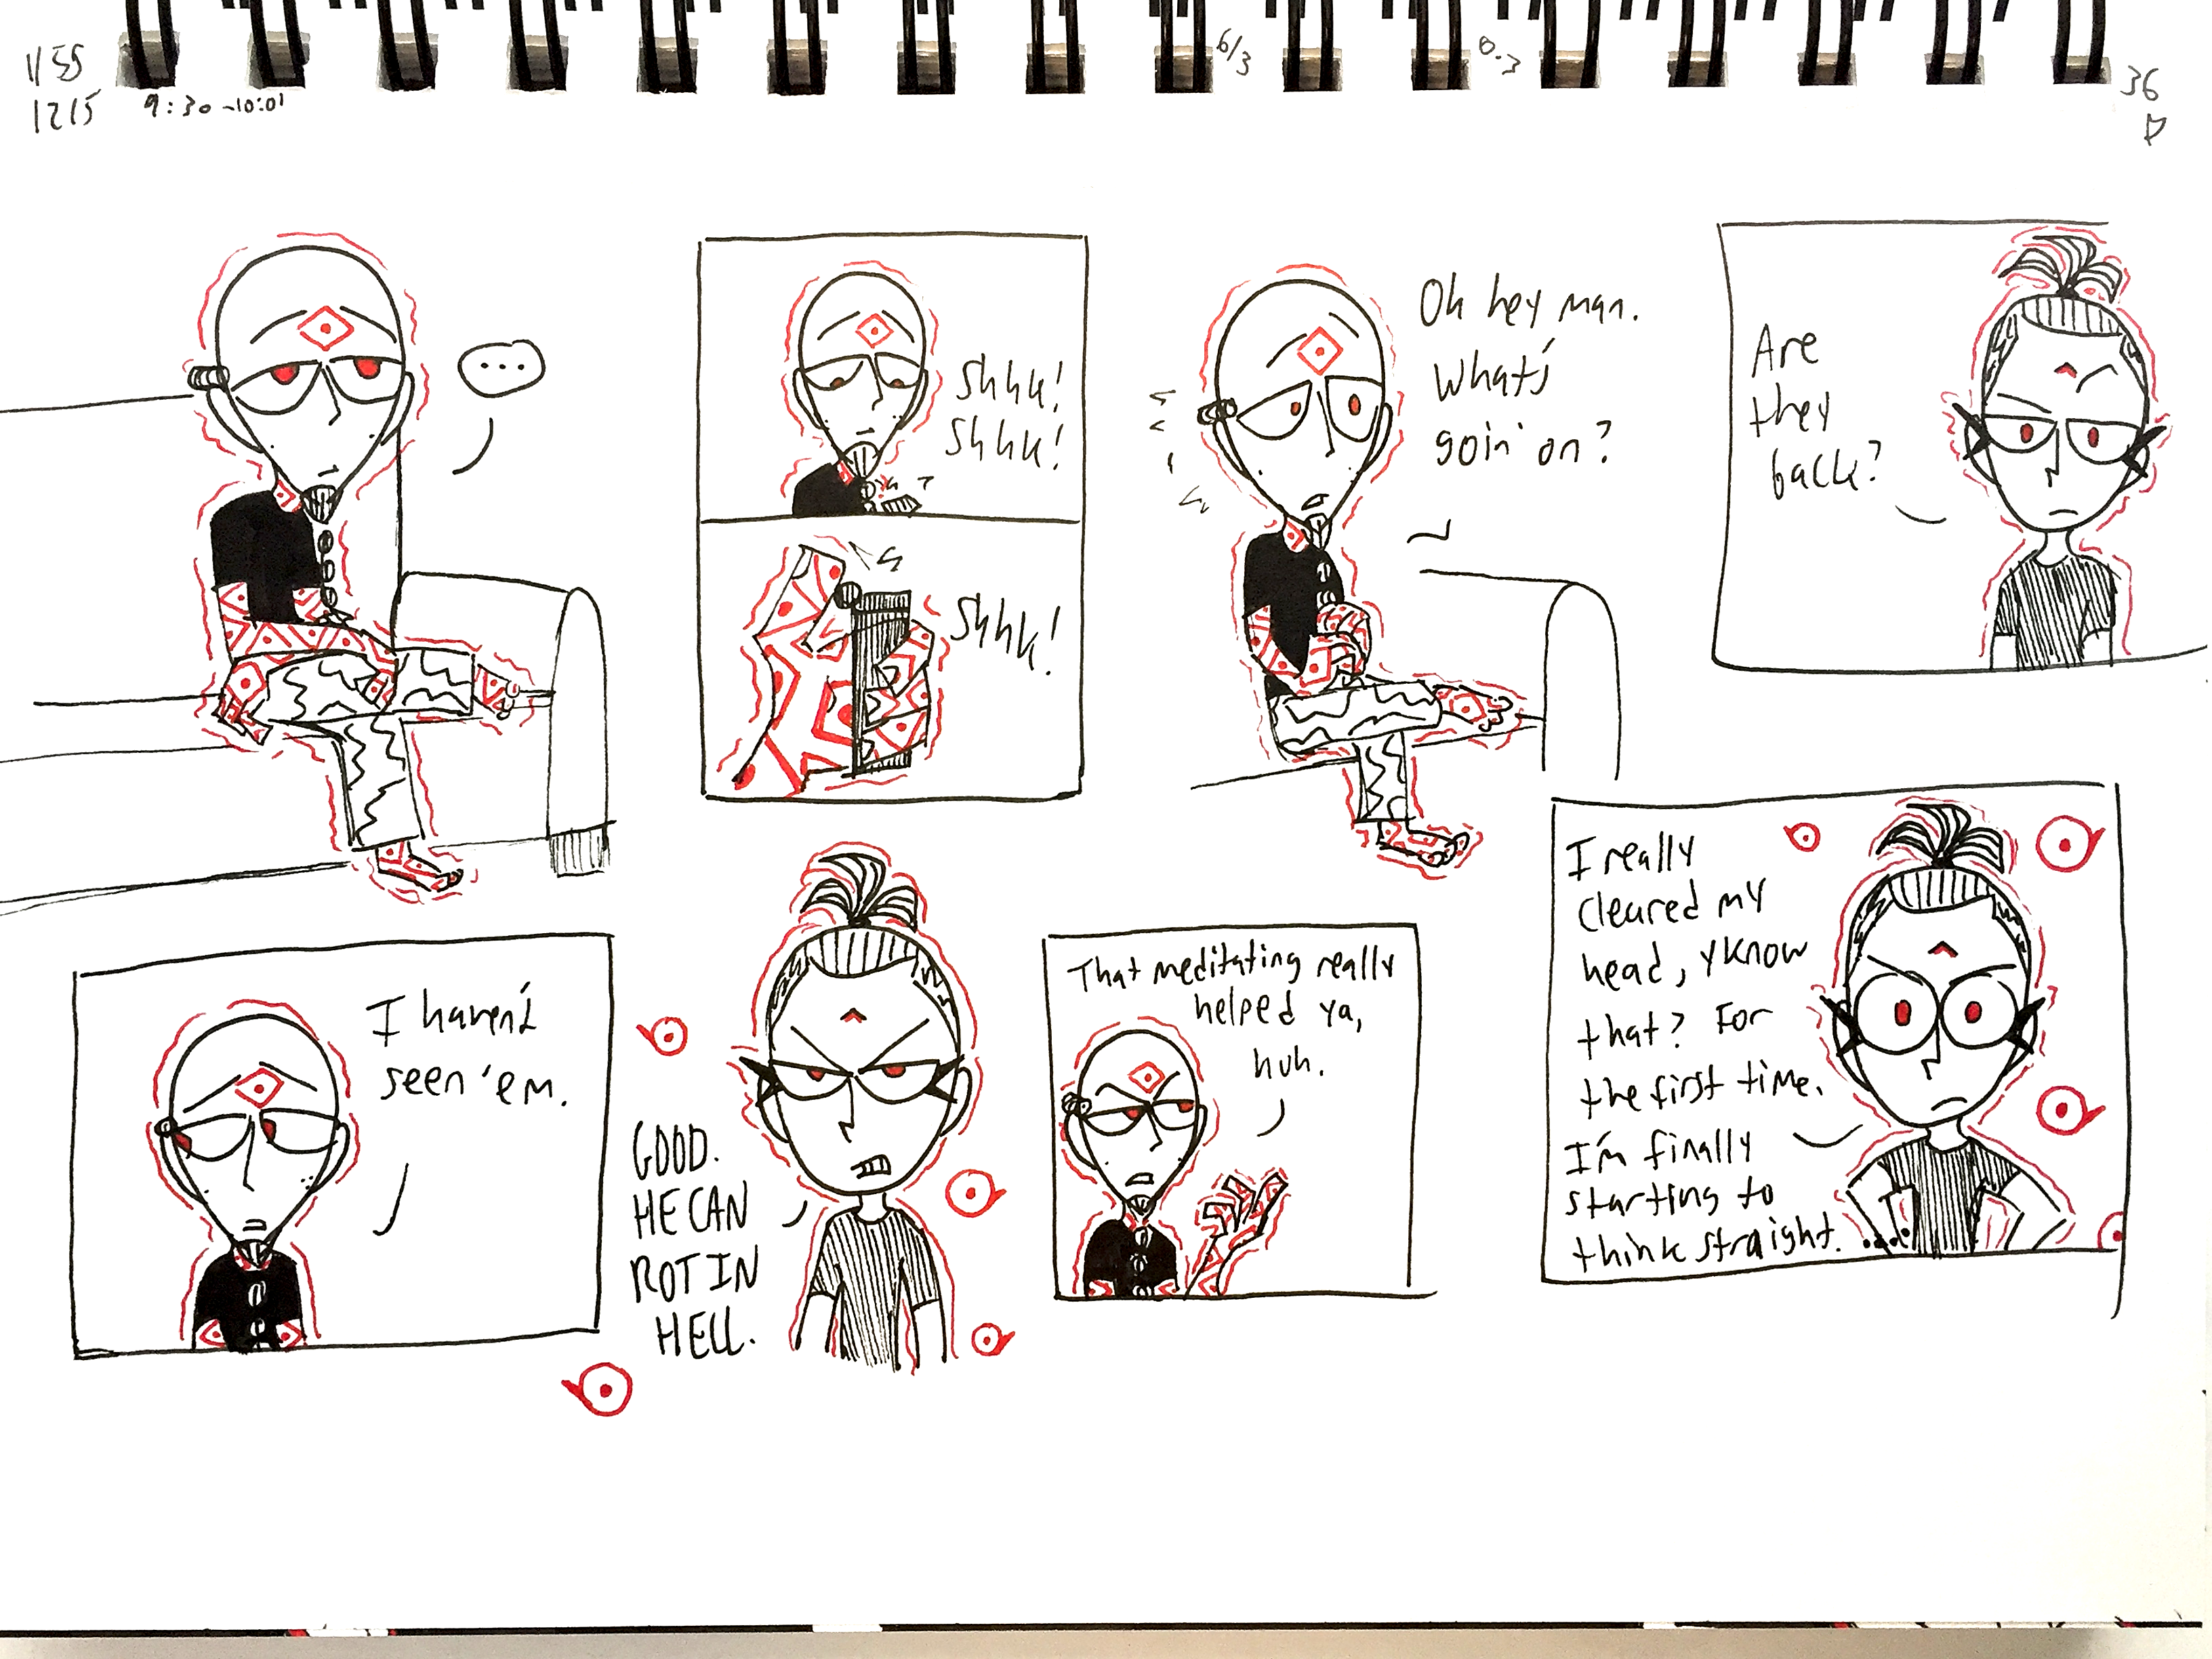 1/55
1215 9:30-10:01
6/3
36
...
Shhk!
Shhk!
Shhk!
Oh hey man.
What's
goin' on?
Are
they
back?
I haven't
seen 'em.
GOOD.
HE CAN
ROT IN
HELL.
That meditating really
helped ya,
huh.
I really
cleared my
head, y'know
that? For
the first time,
I'm finally
starting to
think straight....